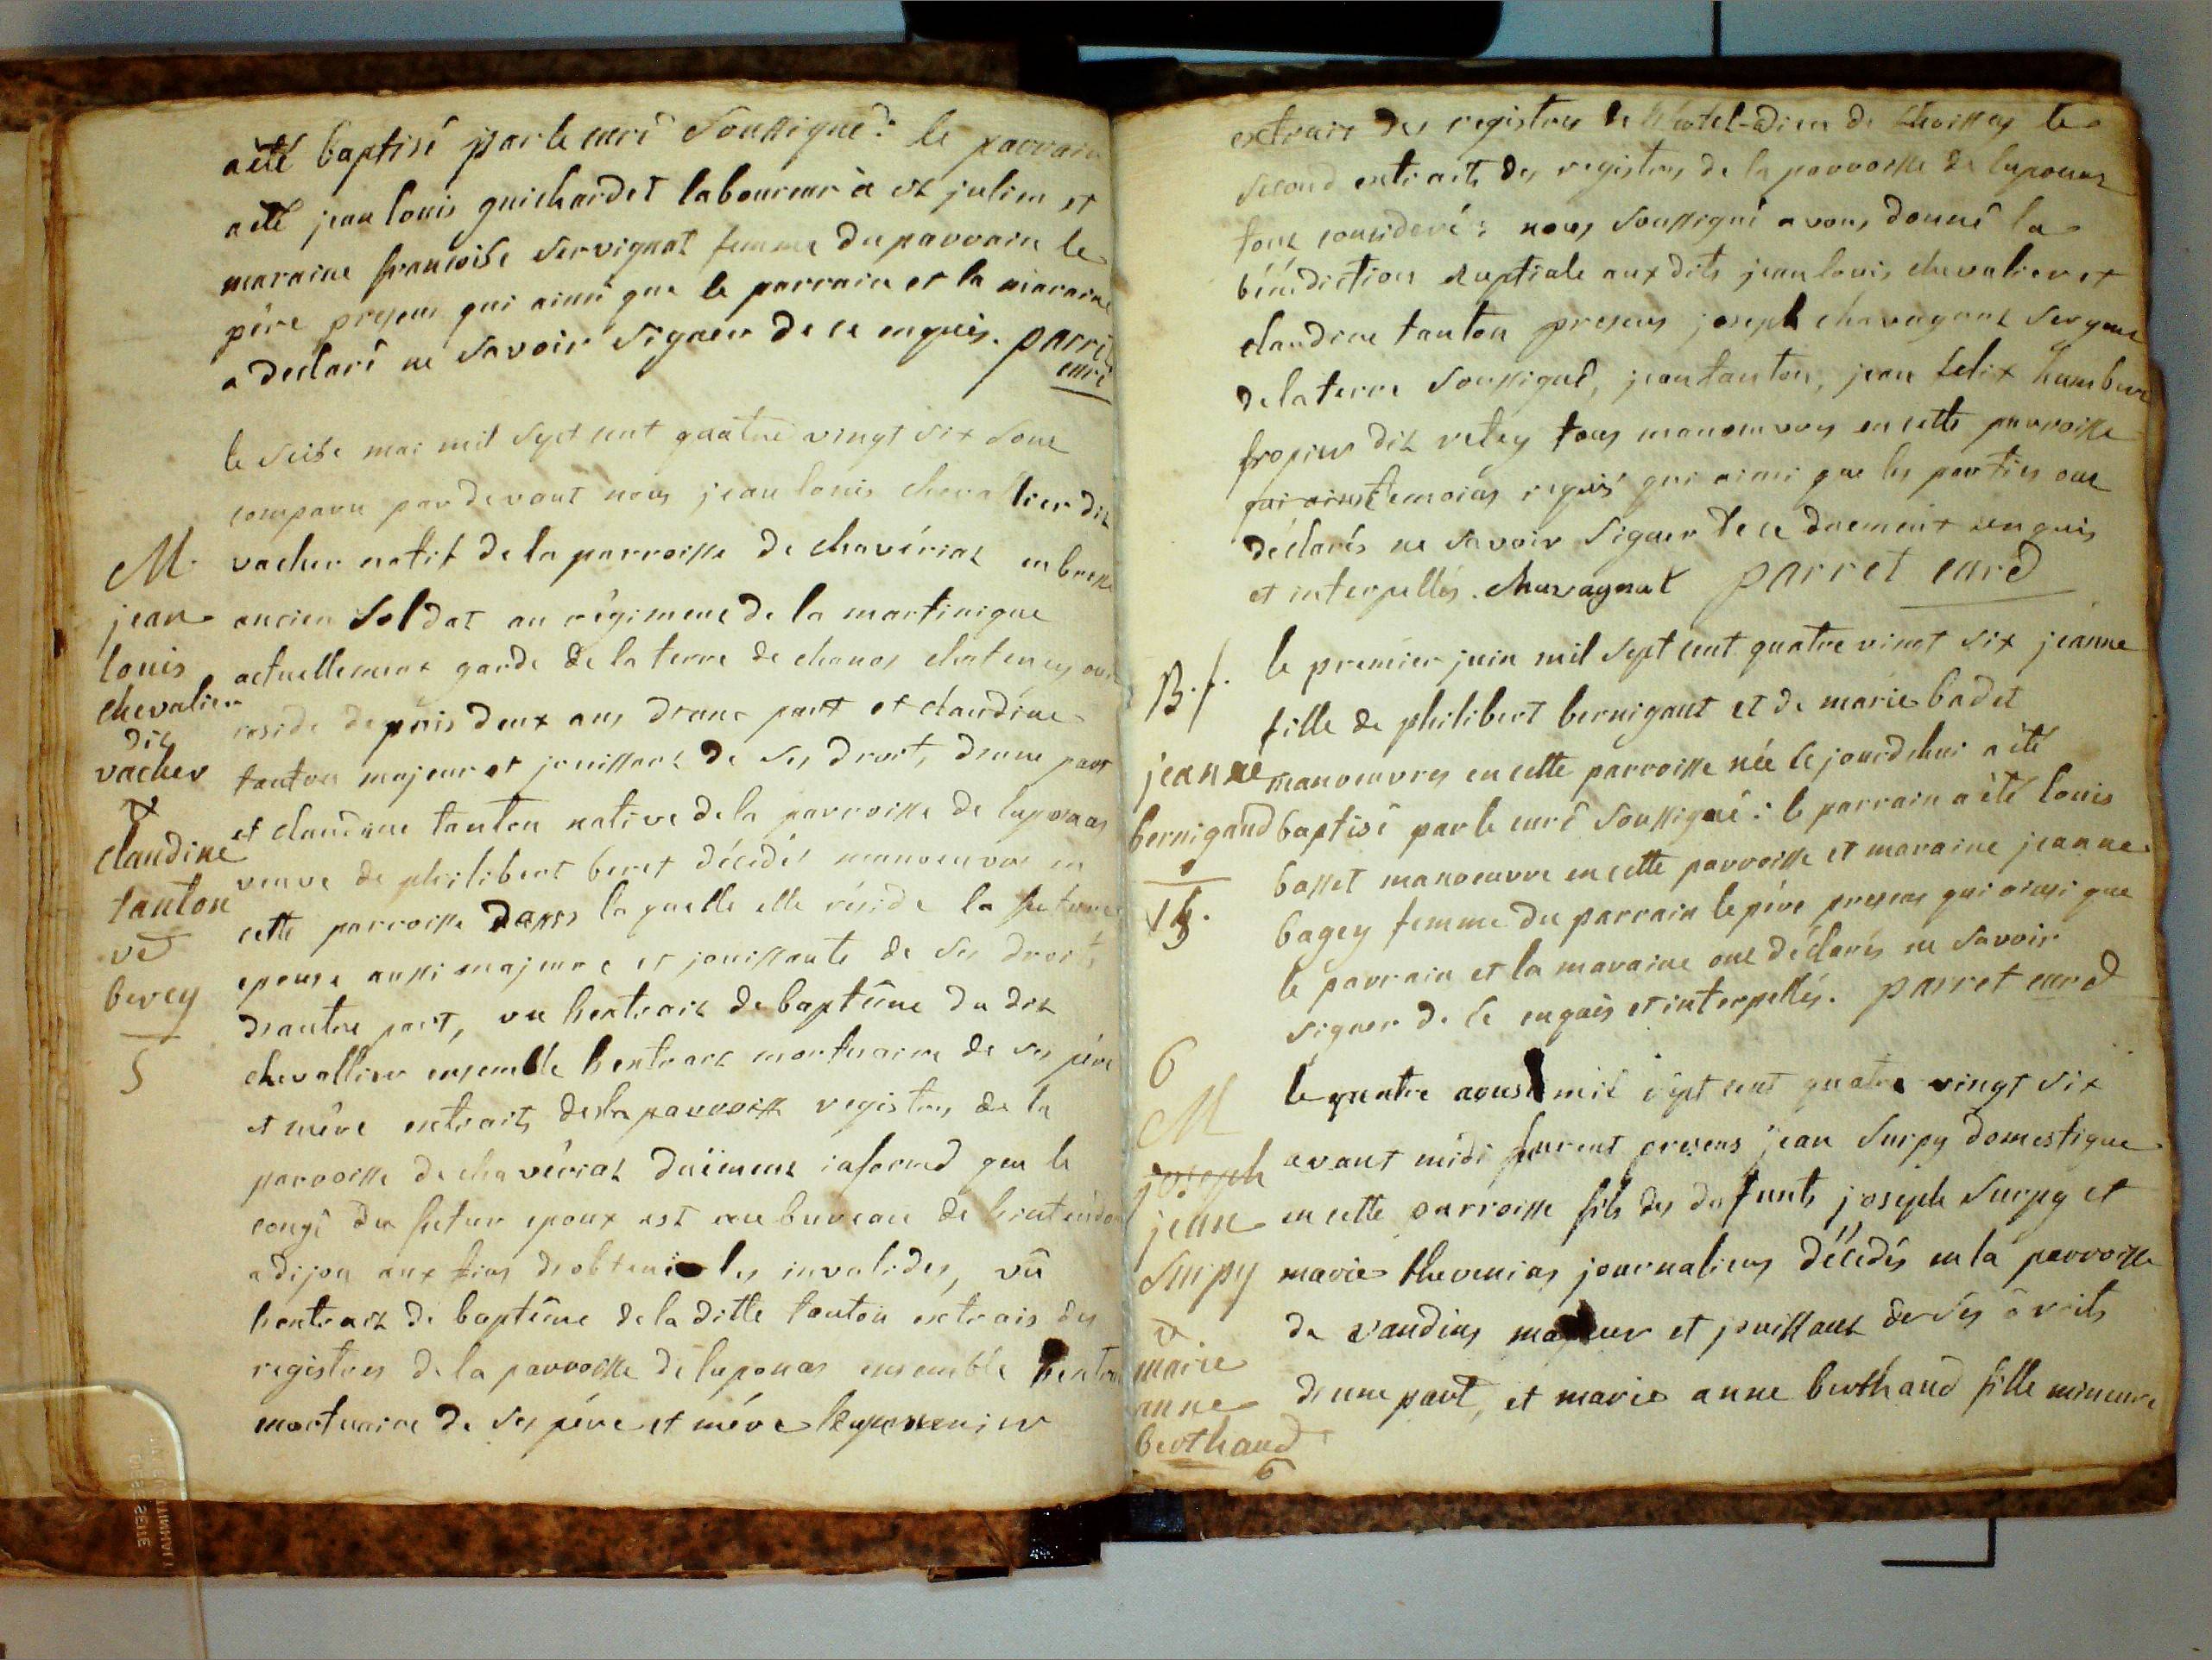 a été baptisé par le curé soussigné : le parrain
a été jean louis guichardet laboureur à st julien et
maraine francoise servignat femme du parrain le
père present qui ainsi que le parrain et la maraine
a declaré ne savoir signer de ce enquis. parret
curé
le seise mai mil sept cent quatre vingt six sont
comparu par devant nous jean louis chevallier dit
vacher natif de la parroisse de chavériat en bresse
ancien soldat au régiment de la martinique
actuellement garde de la terre de chanos chatenay ou il
reside depuis deux ans d'une part et claudine
tanton majeur et jouissant de ses droit, d'une part
et claudine tanton native de la parroisse de luponas
veuve de philibert beret décédé manoeuvre en
cette parroisse dans laquelle elle réside la future
epouse aussi majeure et jouissante de ses droits
d'autre part, vu l'extrait de baptême du dit
chevallier ensemble l'extrait mortuaire de ses père
et mère extraits de la parroisse registres de la
parroisse de chavériat duëment informé que le
congé du futur epoux est au bureau de l'intendan
a dijon aux fins d'obtenir les invalides, vû
l'extrait de baptême de la ditte tanton extrais des
registres de la parroisse de luponas ensemble l'extrai
mortuaire de ses père et mère le premier
M.
jean
louis
chevalier
dit
vacher
&
claudine
tanton
ve
berey
5
extrait des registres de l'hotel-dieu de thoissey le
second extrait des registres de la parroisse de luponas
tout consideré : nous soussigné avons donné la
bénédiction nuptiale aux dits jean louis chevalier et
claudine tanton presens joseph chavagnat sergent
de la terre soussigné, jean tanton, jean felix humbert
dit retey tous manoeuvres en cette parroisse
qui ainsi temoins requis qui ainsi que les parties ont
déclarés ne savoir signer de ce duement enquis
et interpellés. chavagnat parret curé
B. f.
jeanne
bernigand
15.
le premier juin mil sept cent quatre vingt six jeanne
fille de philibert bernigaut et de marie badet
manoeuvres en cette parroisse née le jourdhui a été
baptisé par le curé soussigné : le parrain a été louis
basset manoeuvre en cette parroisse et maraine jeanne
bagey femme du parrain le père present qui ainsi que
le parrain et la maraine ont déclarés ne savoir
signer de ce enquis et interpellés. parret curé
6
M
joseph
jean
surpy
&
marie
anne
berthaud
6
le quatre aoust mil sept cent quatre vingt six
avant midi furent presens jean surpy domestique
en cette parroisse fils des defunts joseph surpy et
marie thevenias journaliers décédés en la parroisse
de vandins majeur et jouissant de ses droits
d'une part, et marie anne berthaud fille mineure